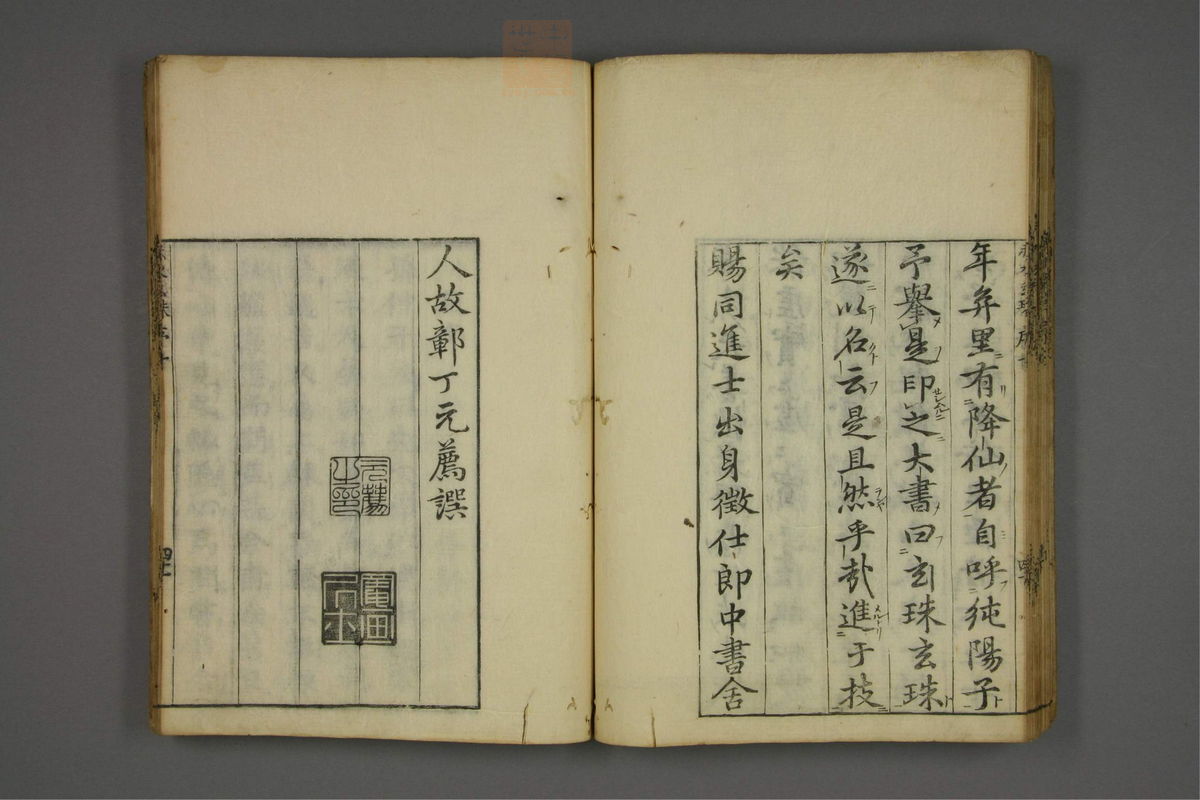 年弇里有降仙者自呼純陽子
予舉是印之大書曰玄珠玄珠
遂以名云是且然乎哉進于技
矣
賜同進士出身徵仕郎中書舍
人故鄣丁元薦譔
元薦之印